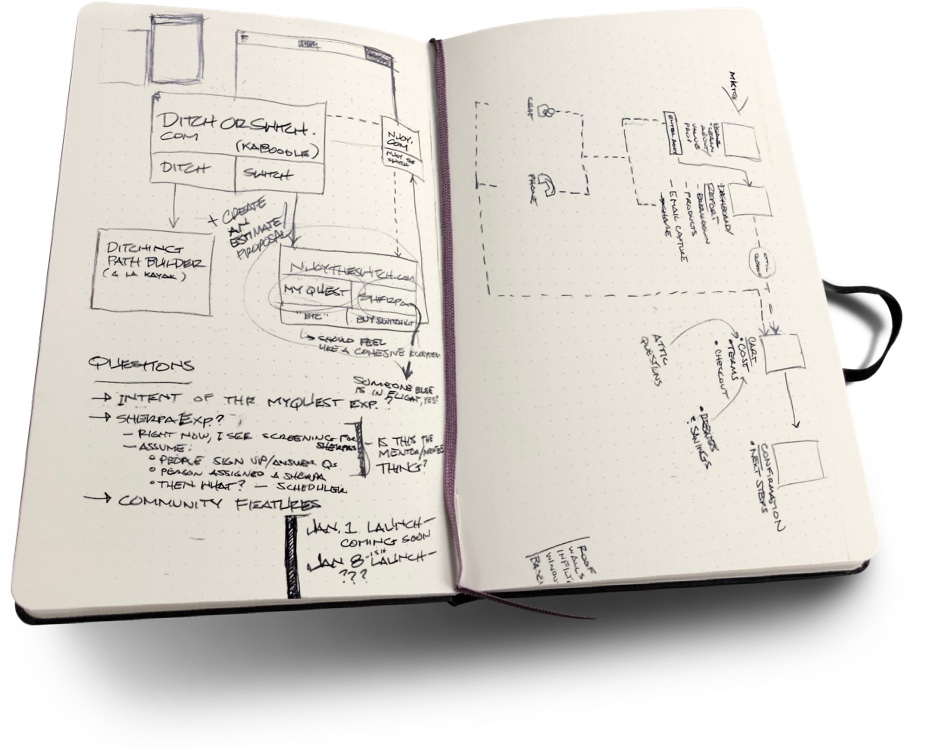 DITCH OR SWITCH.
COM
(KABOODLE)
DITCH
SWITCH
NJOY.
COM
+ CREATE
AN
ESTIMATE/
PROPOSAL
DITCHING
PATH BUILDER
(A LA KAYAK)
NJOYTHESWITCH.com
MY QUEST
SHERPA
"ETC"
↳ SHOULD FEEL
LIKE A COHESIVE ECOSYSTEM
SOMEONE ELSE
IS IN FLIGHT, YES?
QUESTIONS
→ INTENT OF THE MYQUEST EXP.?
→ SHERPA EXP.?
– RIGHT NOW, I SEE SCREENING FOR
SHERPAS
– ASSUME:
• PEOPLE SIGN UP/ANSWER QS
• PERSON ASSIGNED A SHERPA
• THEN WHAT? – SCHEDULER
– IS THIS THE
MENTOR/MENTEE
THING?
→ COMMUNITY FEATURES
JAN. 1 LAUNCH –
COMING SOON
JAN 8-ISH LAUNCH –
???
MKTG
HOME
VALUE
PROP
CHAT
PHONE
DASHBOARD/
REPORT
– BREAKDOWN
– PRODUCTS
– EMAIL CAPTURE
– SHARE
ATTIC
QUESTIONS
CART
• COST
• TERMS
• CHECKOUT
• REBATES
& SAVINGS
CONFIRMATION
• NEXT STEPS
ROOF
WALLS
INFILT.
WINDOW